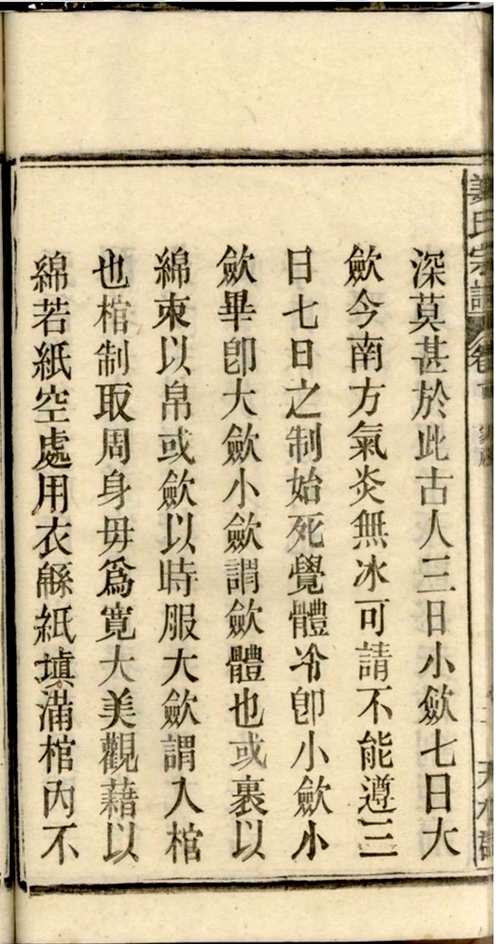 姜氏宗譜
卷
深莫甚於此古人三日小歛七日大
歛今南方氣炎無冰可請不能遵三
日七日之制始死覺體冷卽小歛小
歛畢卽大歛小歛謂歛體也或裹以
綿束以帛或歛以時服大歛謂入棺
也棺制取周身毋爲寬大美觀藉以
綿若紙空處用衣緜紙塡滿棺內不